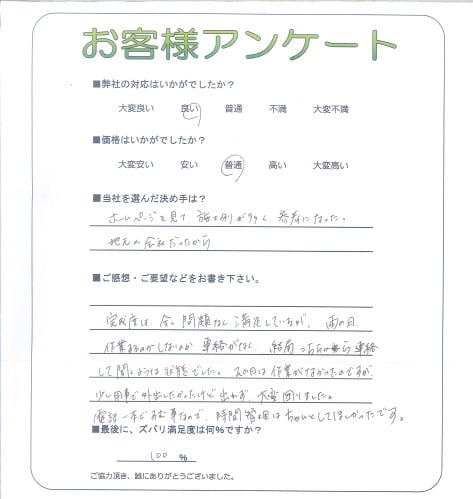 お客様アンケート
■弊社の対応はいかがでしたか？
大変良い 良い 普通 不満 大変不満
■価格はいかがでしたか？
大変安い 安い 普通 高い 大変高い
■当社を選んだ決め手は？
ホームページを見て 施工例が多く、参考になった。
地元の会社だったから
■ご感想・ご要望などをお書き下さい。
完成度は 全く問題なく満足していたが、雨の日
作業するのかしないのか 連絡がなく、結局こちらから連絡
して聞くような状態でした。その日は作業がなかったのですが、
少し用事で外出したかったけど出れず、大変困りました。
電話一本で済む事なので、時間管理はちゃんとしてほしかったです。
■最後に、ズバリ満足度は何％ですか？
100 %
ご協力頂き、誠にありがとうございました。